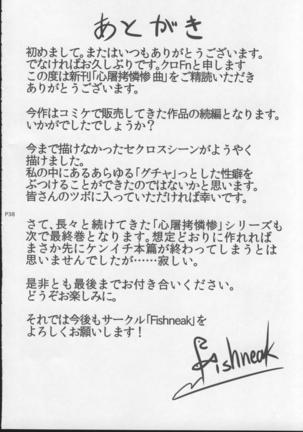 あとがき
初めまして。またはいつもありがとうございます。
でなければお久しぶりです。クロFnと申します
この度は新刊「心屠拷憐惨曲」をご精読いただき
ありがとうございます。
今作はコミケで販売してきた作品の続編となります。
いかがでしたでしょうか？
今まで描けなかったセクロスシーンがようやく
描けました。
私の中にあるあらゆる「グチャ」っとした性癖を
ぶつけることができたのではないかと思います。
皆さんのツボに入っていただければ幸いです。
P38
さて、長々と続けてきた「心屠拷憐惨」シリーズも
次で最終巻となります。想定どおりに作れれば
まさか先にケンイチ本篇が終わってしまうとは
思いませんでしたが……寂しい。
是非とも最後までお付き合いください。
どうぞお楽しみに。
それでは今後もサークル「Fishneak」を
よろしくお願いします！
Fishneak